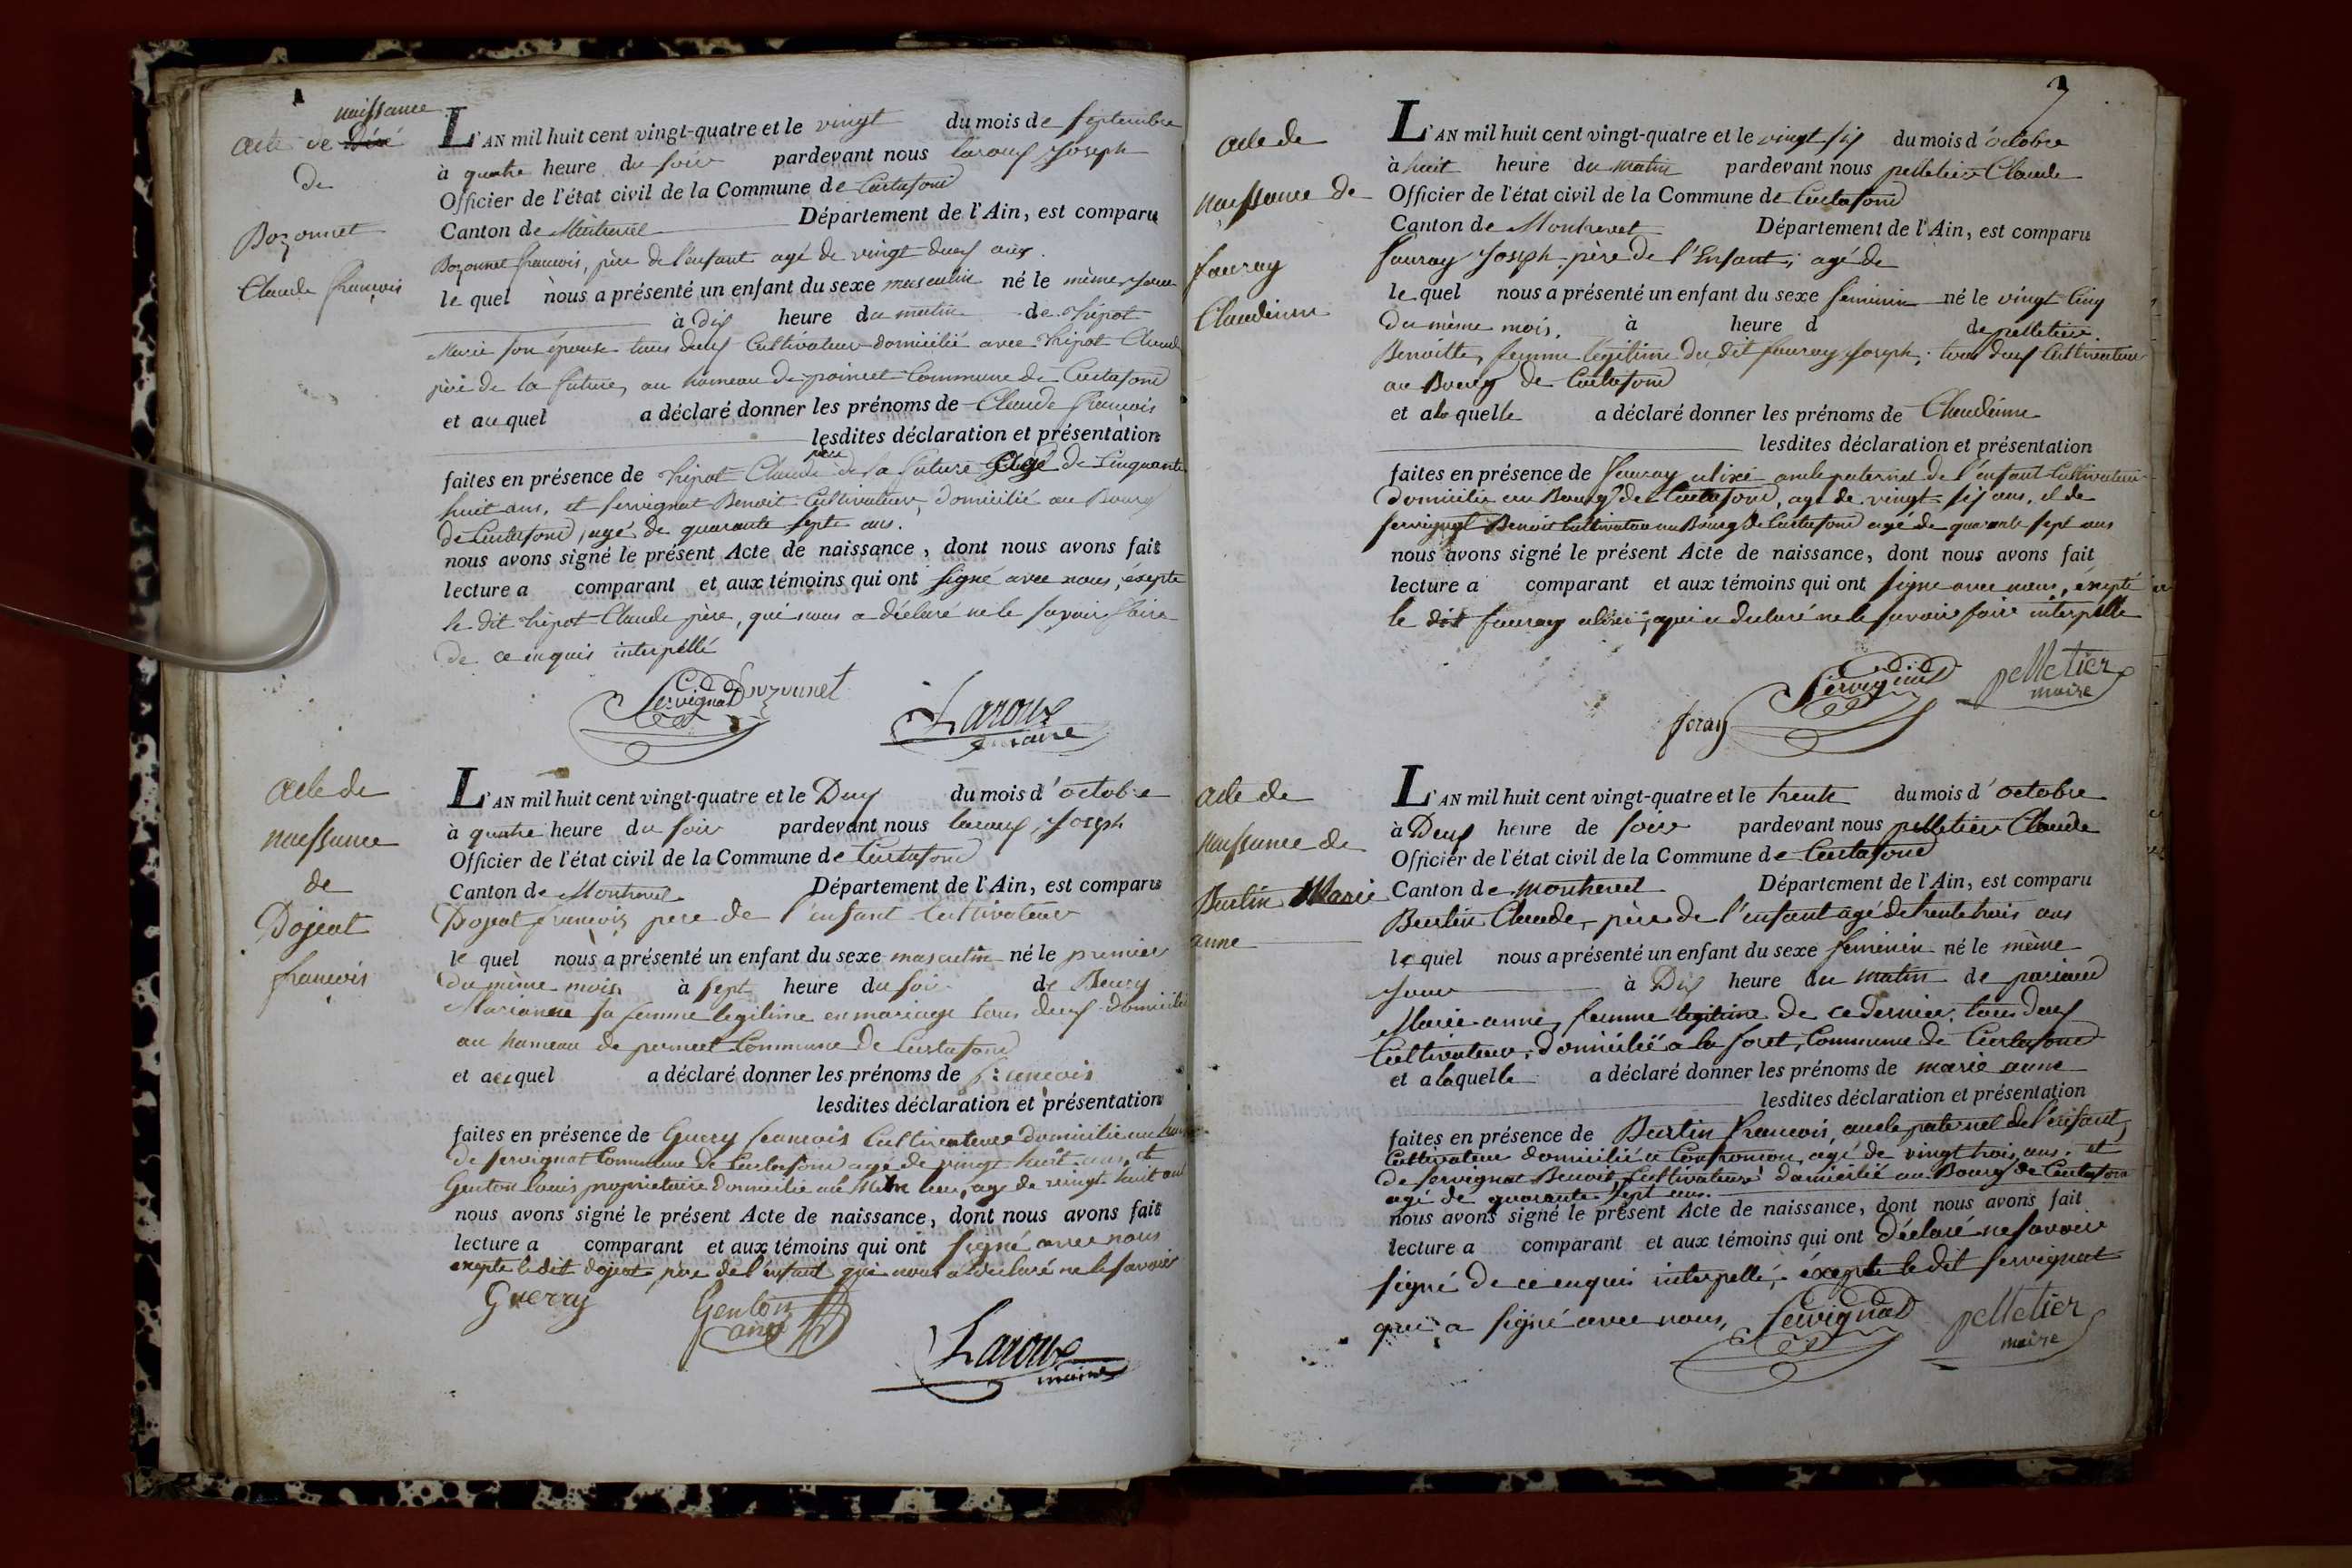 naissance
acte de Décé
de
Bozonnet
Claude françois
L'AN mil huit cent vingt-quatre et le vingt du mois de septembre
à quatre heure du soir pardevant nous laroux Joseph
Officier de l'état civil de la Commune de Curtafond
Canton de Montrevel Département de l'Ain, est comparu
Bozonnet françois, père de l'enfant agé de vingt deux ans
le quel nous a présenté un enfant du sexe masculin né le même jour
à dix heure du matin de Tripot
Marie son épouse tous deux Cultivateur domicilié avec Tripot Claude
père de la future, au hameau de Commune de Curtafond
et au quel a déclaré donner les prénoms de Claude françois
lesdites déclaration et présentation
faites en présence de Tripot Claude père de la future agé de Cinquante
huit ans, et servignat Benoit Cultivateur, domicilié au Bourg
de Curtafond, agé de quarante sept ans.
nous avons signé le présent Acte de naissance, dont nous avons fait
lecture a comparant et aux témoins qui ont signé avec nous, éxepte
le dit Tripot Claude père, qui nous a déclaré ne le savoir faire
de ce enquis interpellé
Servignat Bozonnet
Laroux
maire
acte de
naissance
de
Dojeat
francois
L'AN mil huit cent vingt-quatre et le Deux du mois d'octobre
à quatre heure du soir pardevant nous laroux Joseph
Officier de l'état civil de la Commune de Curtafond
Canton de Montrevel Département de l'Ain, est comparu
Dojeat francois pere de l'enfant Cultivateur
le quel nous a présenté un enfant du sexe masculin né le premier
du même mois à sept heure du soir de
Marianne sa femme legitime en mariage tous deux domicilié
au hameau de Commune de Curtafond
et au quel a déclaré donner les prénoms de francois
lesdites déclaration et présentation
faites en présence de Guery francois Cultivateur domicilié au
de servignat Commune de Curtafond agé de vingt huit ans, et
Genton Louis proprietaire domicilié au Même lieu, agé de vingt huit ans
nous avons signé le présent Acte de naissance, dont nous avons fait
lecture a comparant et aux témoins qui ont signé avec nous
exepte le dit dojeat père de l'enfant qui nous a déclaré ne le savoir
Guerry Genton
Laroux
maire
7
acte de
naissance de
fauray
Claudinne
L'AN mil huit cent vingt-quatre et le vingt six du mois d'octobre
à huit heure du matin pardevant nous pelletier Claude
Officier de l'état civil de la Commune de Curtafond
Canton de Montrevel Département de l'Ain, est comparu
fauray Joseph père de l'Enfant, agé de
le quel nous a présenté un enfant du sexe feminin né le vingt Cinq
du même mois, à heure d de pelletier
Benoitte, femme légitime du dit fauray Joseph, tous deux Cultivateur
au Bourg de Curtafond
et a la quelle a déclaré donner les prénoms de Claudinne
lesdites déclaration et présentation
faites en présence de fauray alixé oncle paternel de l'enfant Cultivateur
domicilié au Bourg de Curtafond, agé de vingt six ans, et de
servignat Benoit Cultivateur au Bourg de Curtafond agé de quarante sept ans
nous avons signé le présent Acte de naissance, dont nous avons fait
lecture a comparant et aux témoins qui ont signe avec nous, éxepté
le dit fauray alixé, qui a declaré ne le savoir faire interpelle
Servignat pelletier
maire
foray
acte de
naissance de
Burtin Marie
anne
L'AN mil huit cent vingt-quatre et le trente du mois d'octobre
à Deux heure de soir pardevant nous pelletier Claude
Officier de l'état civil de la Commune de Curtafond
Canton de montrevel Département de l'Ain, est comparu
Burtin Claude, père de l'enfant agé de trente trois ans
le quel nous a présenté un enfant du sexe feminin né le même
Jour à Dix heure du matin de pariaud
Marie anne, femme legitime de ce dernier, tous deux
Cultivateur, domicilié a la foret, Commune de Curtafond
et a la quelle a déclaré donner les prénoms de marie anne
lesdites déclaration et présentation
faites en présence de Burtin francois, oncle paternel de l'enfant,
Cultivateur domicilié a Confrancon, agé de vingt trois ans, et
de servignat Benoit, Cultivateur domicilié au Bourg de Curtafond
agé de quarante sept ans.
nous avons signé le présent Acte de naissance, dont nous avons fait
lecture a comparant et aux témoins qui ont déclaré ne savoir
signé de ce enquis interpellé, éxepté le dit servignat
qui a signé avec nous, Servignat pelletier
maire